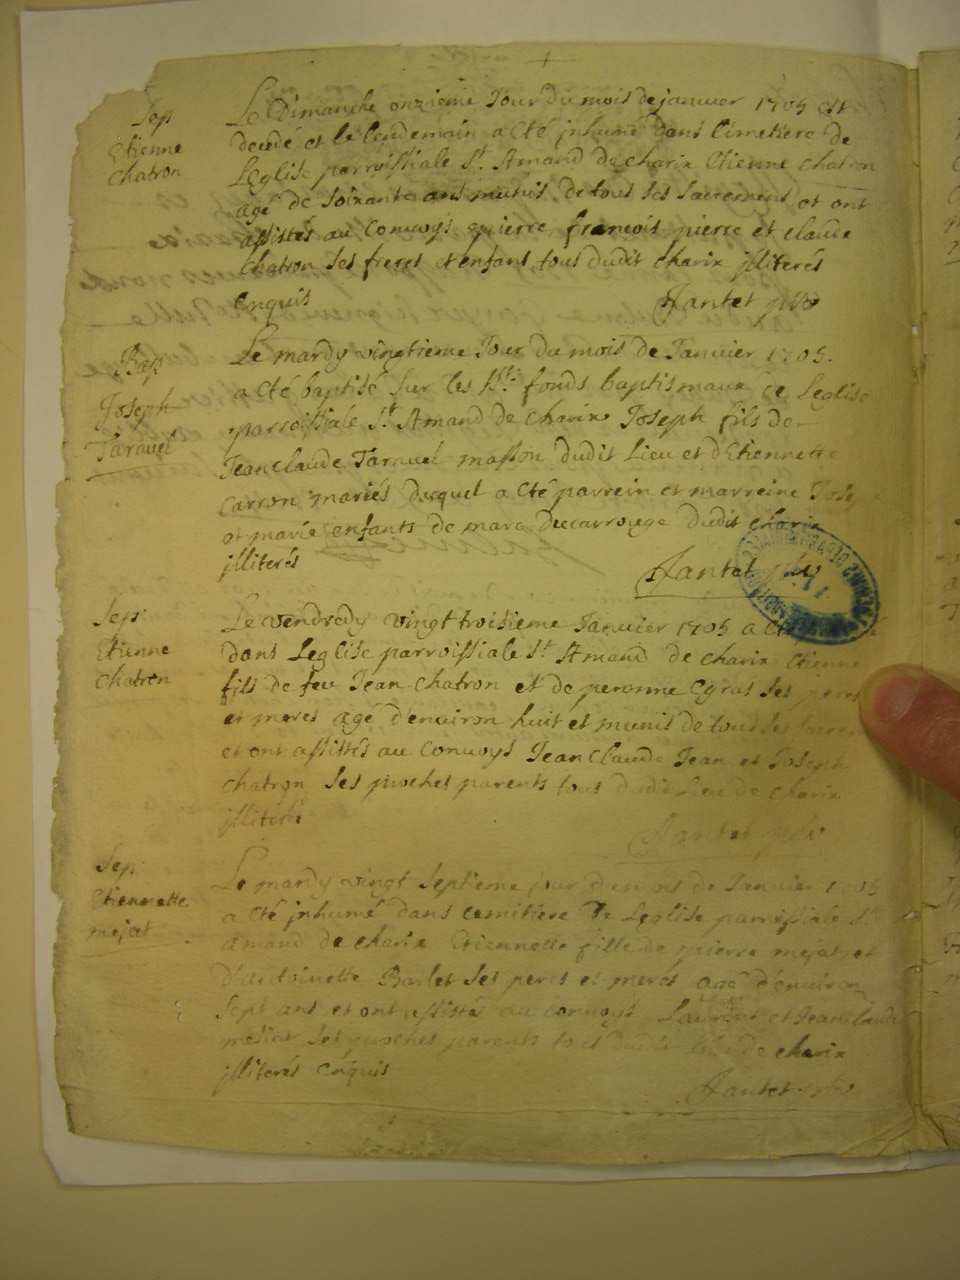 Sep
Etienne
chatron
Le Dimanche onzieme Jour du mois de janvier 1705 est
decedé et le lendemain a Cté jnhumé dans Cimetiere de
Leglise parroissiale St Amand de charix Etienne chatron
agé de soixante ans munis de tous ses sacremens et ont
assistés au Convoys pierre francois pierre et claude
Chatron ses freres et enfans tous dudit charix jlliterés
Enquis
Jantet
Bap
Joseph
Taravel
Le mardy vingtieme Jour du mois de Janvier 1705.
a Cté baptisé sur les Sts fonds baptismaux de Leglise
parroissiale St Amand de charix Joseph fils de
Jean Claude Taravel masson dudit Lieu et d'Etiennette
Carron mariés duquel a Cté parrein et marreine
et marie enfants de marc Ducarrouge dudit charix
jlliterés
Jantet
Sep
Etienne
chatron
Le vendredy vingt troisieme Janvier 1705 a
dans Leglise parroissiale St Amand de charix Etienne
fils de feu Jean chatron et de peronne Cyras ses peres
et meres agé d'environ huit et munis de tous ses
et ont assistés au Convoys Jean Claude Jean et Joseph
chatron ses proches parents tous dudit Lieu de charix
jlliterés
Jantet
Sep
Etiennette
mejat
Le mardy vingt septieme jour de Janvier 1705
a Cté jnhumé dans cemitiere de Leglise parroissiale St
Amand de charix Etiennette fille de pierre mejat et
D'antoinette Barlet ses peres et meres agé d'environ
sept ans et ont assistés au Convoys Laurent et Jean Claude
mejat ses proches parents tous dudit lieu de charix
jlliterés Enquis
Jantet